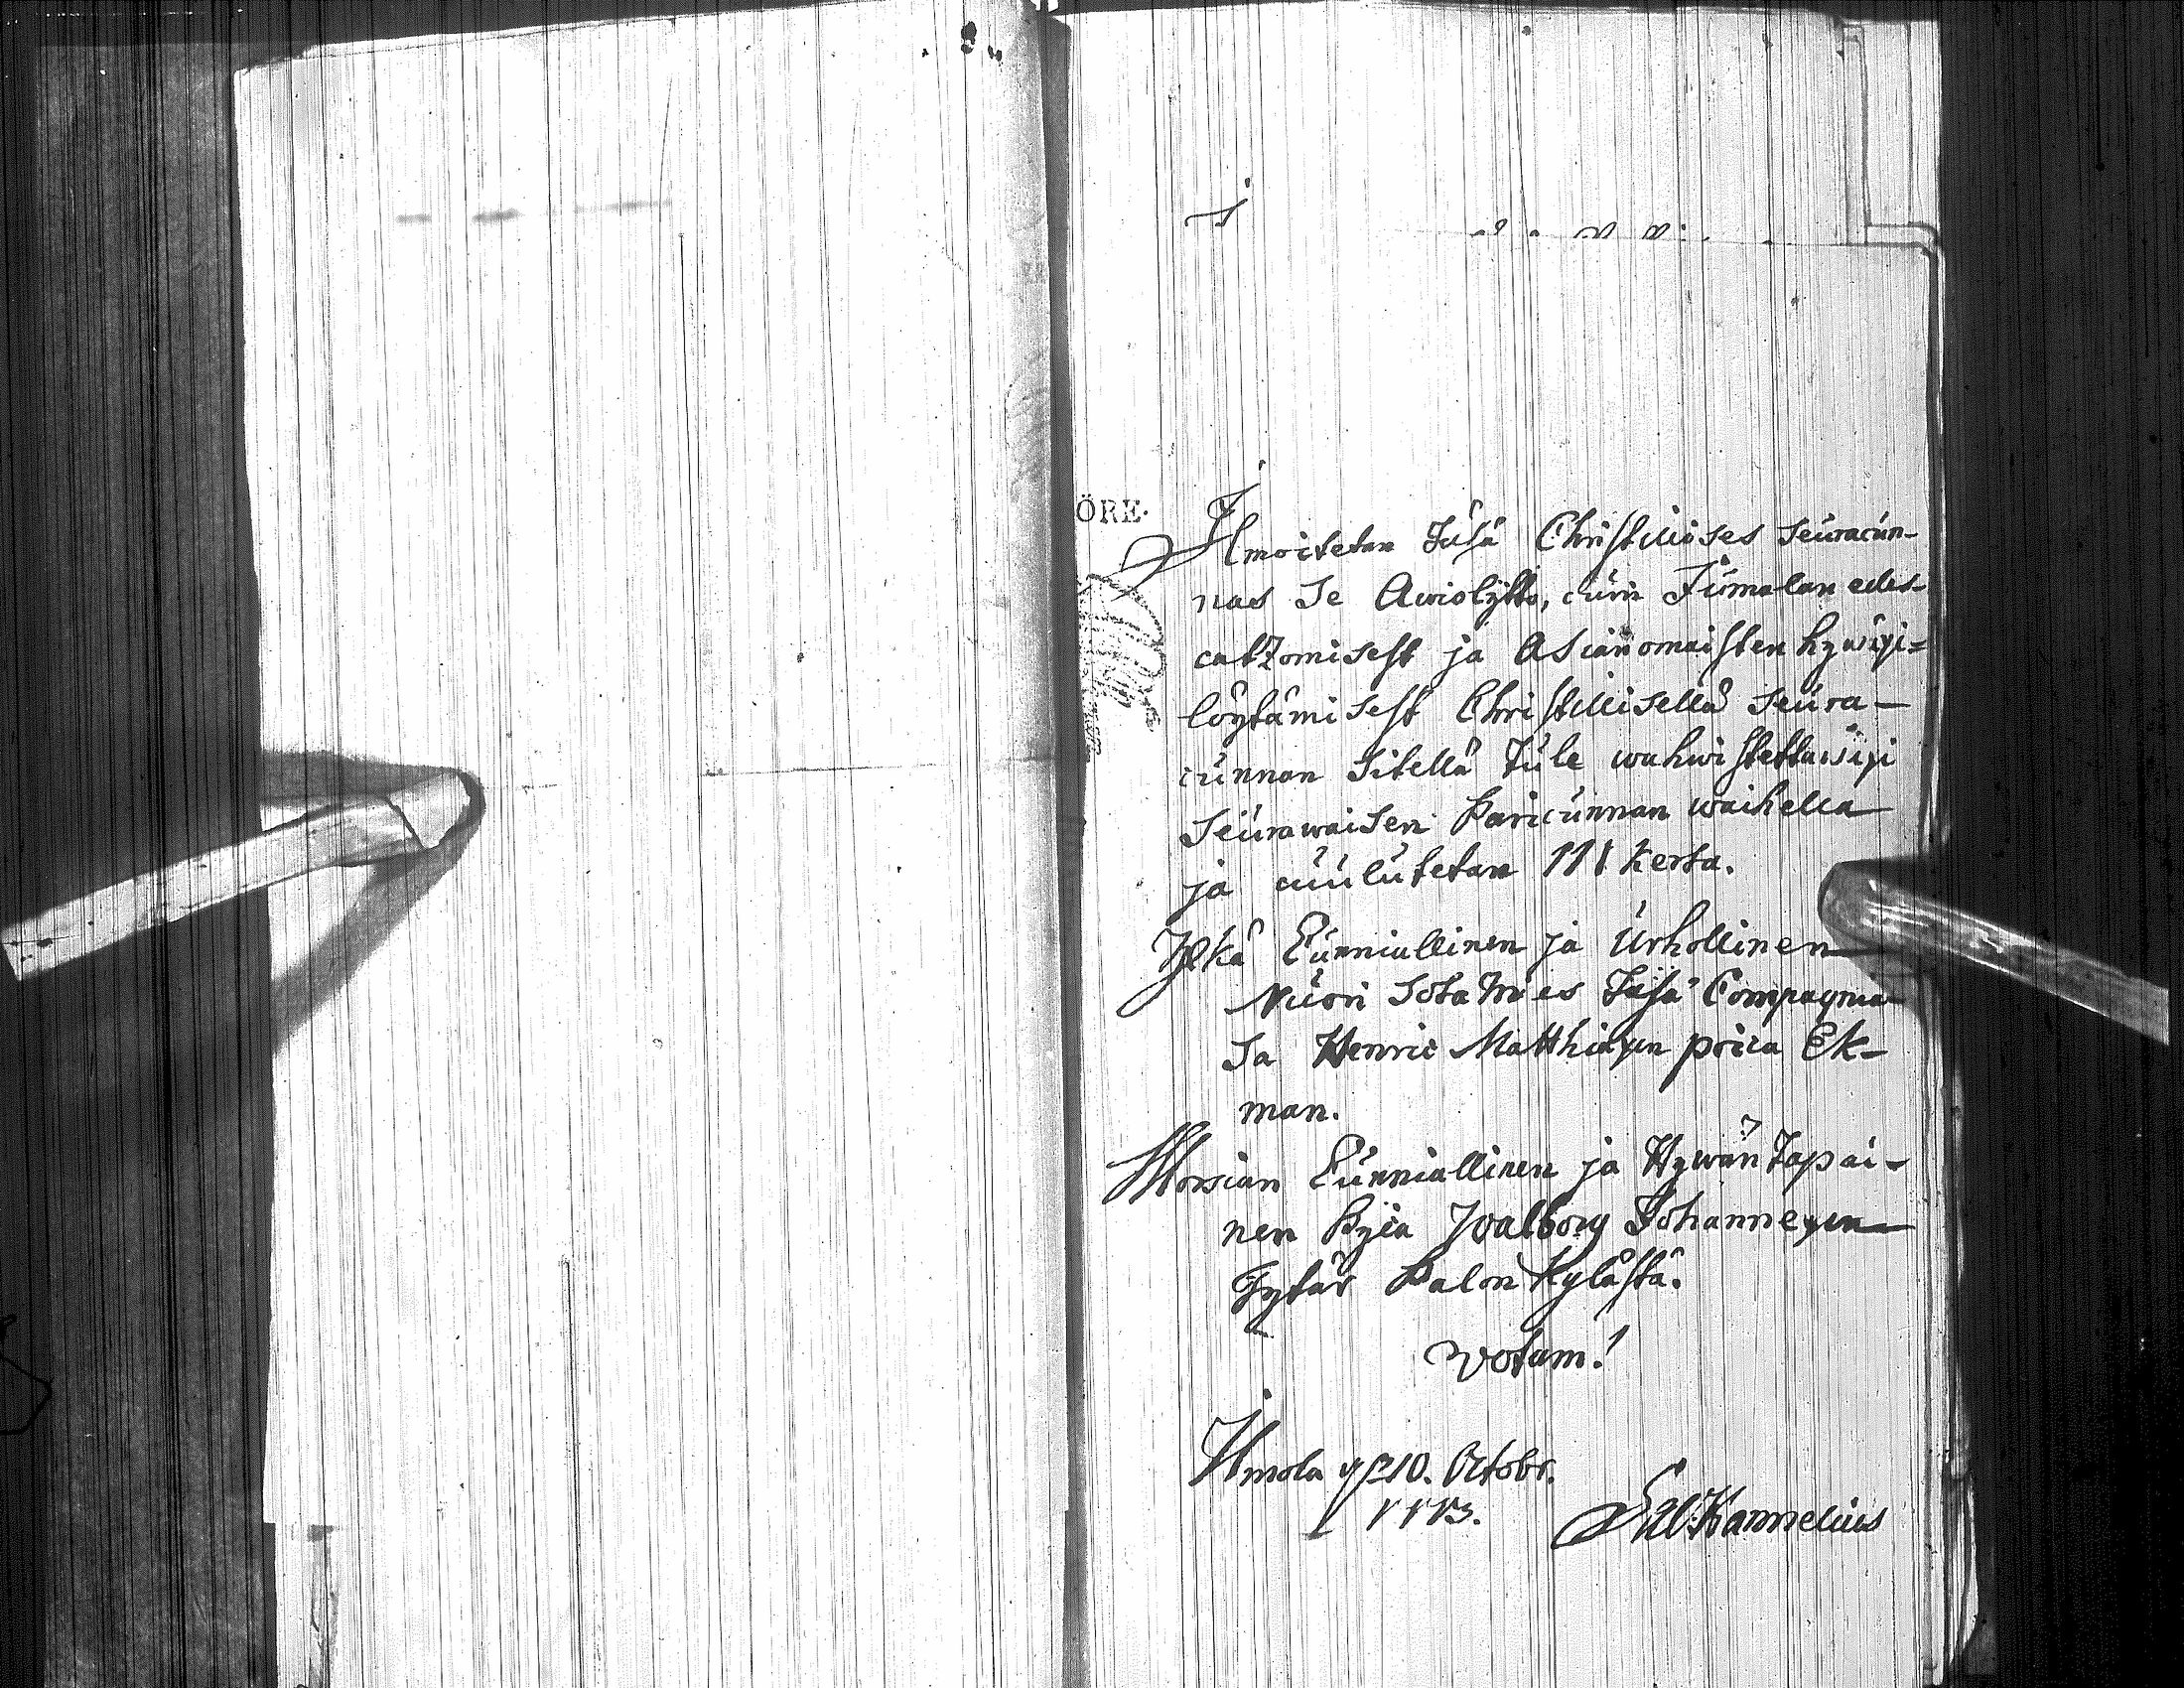 ÖRE.
Ilmoitetan Täsä Christillises Seuracun-
nas Se Awioliitto, cuin Jumalan edes-
catzomisest ja Asianomaisten hywäxi-
löytämisest Christillisellä Seura-
cunnan Sitellä Tule wahwistettawaxi
Seurawaisen Pariscunnan waihella
ja cuulutetan III Kerta.
Yljkä Cunniallinen ja Urhollinen
Nuori SotaMies Täsä Compagnia-
Sa Henric Matthiaxen poica Ek-
man.
Morsian Cunniallinen ja HywänTapai-
nen Pijca Walborg Johannexen
Tytär Palon Kylästä.
Votum!
Ilmola 10. Octobr.
Kannelius